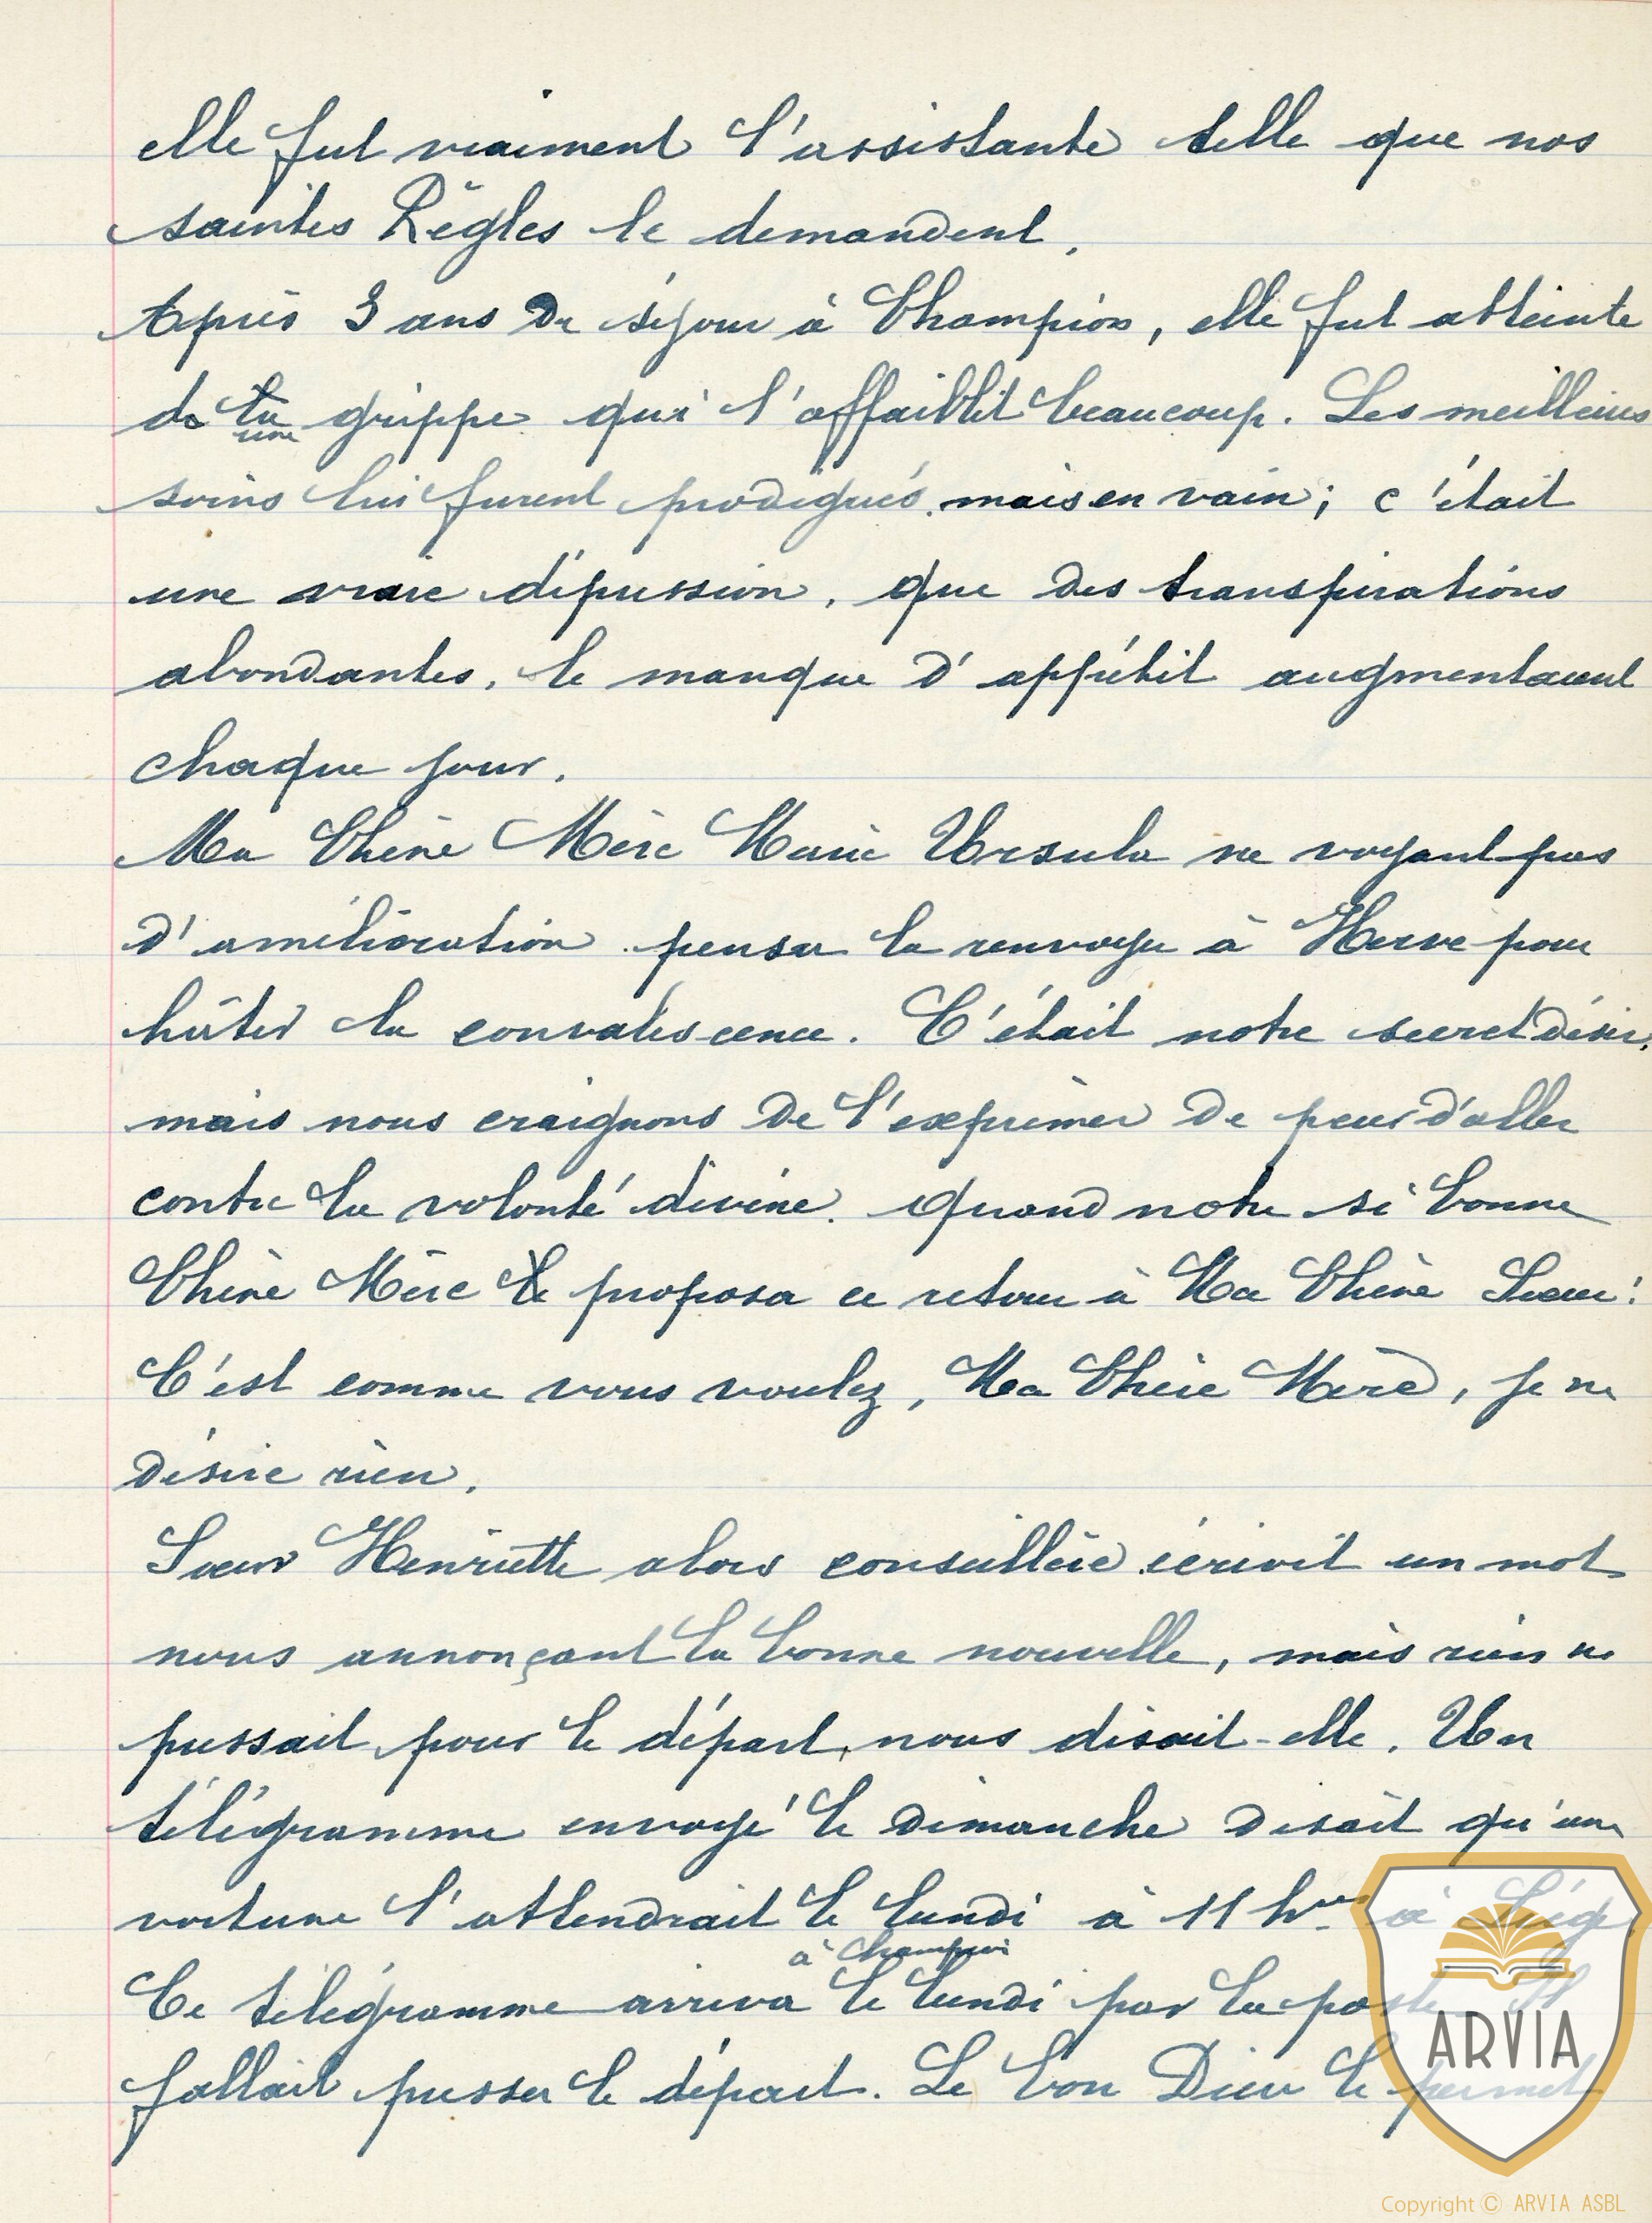 elle fut vraiment l'assistante telle que nos
saintes Règles le demandent.
Après 3 ans de séjour à Champion, elle fut atteinte
de la grippe qui l'affaiblit beaucoup. Les meilleurs
une
soins lui furent prodigués, mais en vain; c'était
une vraie dépression, que des transpirations
abondantes, le manque d'appétit augmentaient
chaque jour.
Ma Chère Mère Marie Ursula ne voyant pas
d'amélioration pensa la renvoyer à Herve pour
hâter la convalescence. C'était notre secret désir,
mais nous craignons de l'exprimer de peur d'aller
contre la volonté divine. Quand notre si bonne
Chère Mère proposa ce retour à Ma Chère Sœur:
C'est comme vous voulez, Ma Chère Mère, je ne
désire rien.
Sœur Henriette alors conseillère écrivit un mot
nous annonçant la bonne nouvelle, mais rien ne
pressait pour le départ, nous disait-elle. Un
télégramme envoyé le dimanche disait qu'une
voiture l'attendrait le lundi à 11 hres à Liège
à Champion
Ce télégramme arriva le lundi par la poste. Il
fallait presser le départ. Le bon Dieu le permet
ARVIA
Copyright © ARVIA ASBL